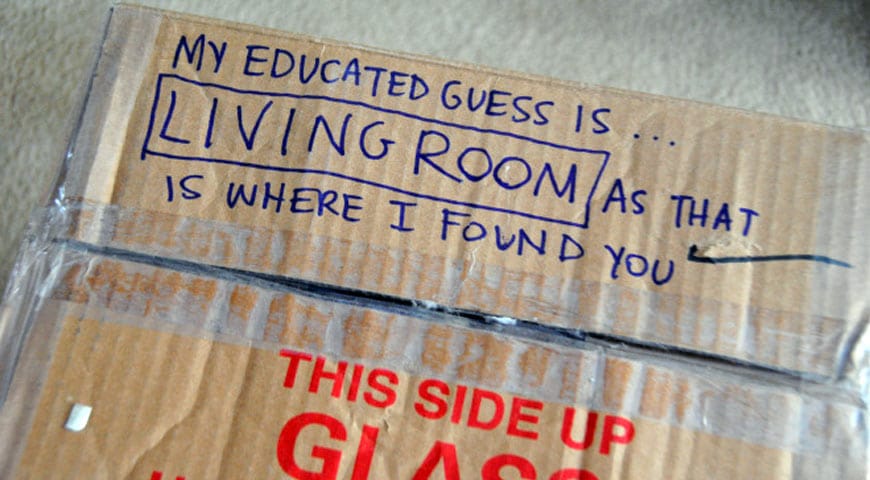 MY EDUCATED GUESS IS ...
LIVING ROOM AS THAT
IS WHERE I FOUND YOU
THIS SIDE UP
GLASS